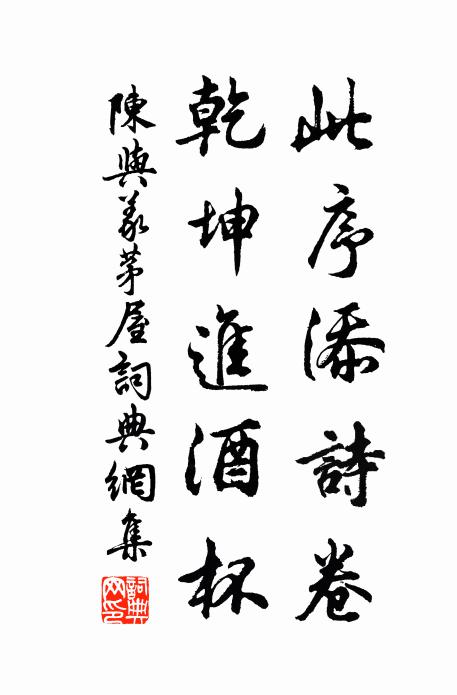 此序添詩卷
乾坤進酒杯
陳與義茅屋詞典網集
詞典网印